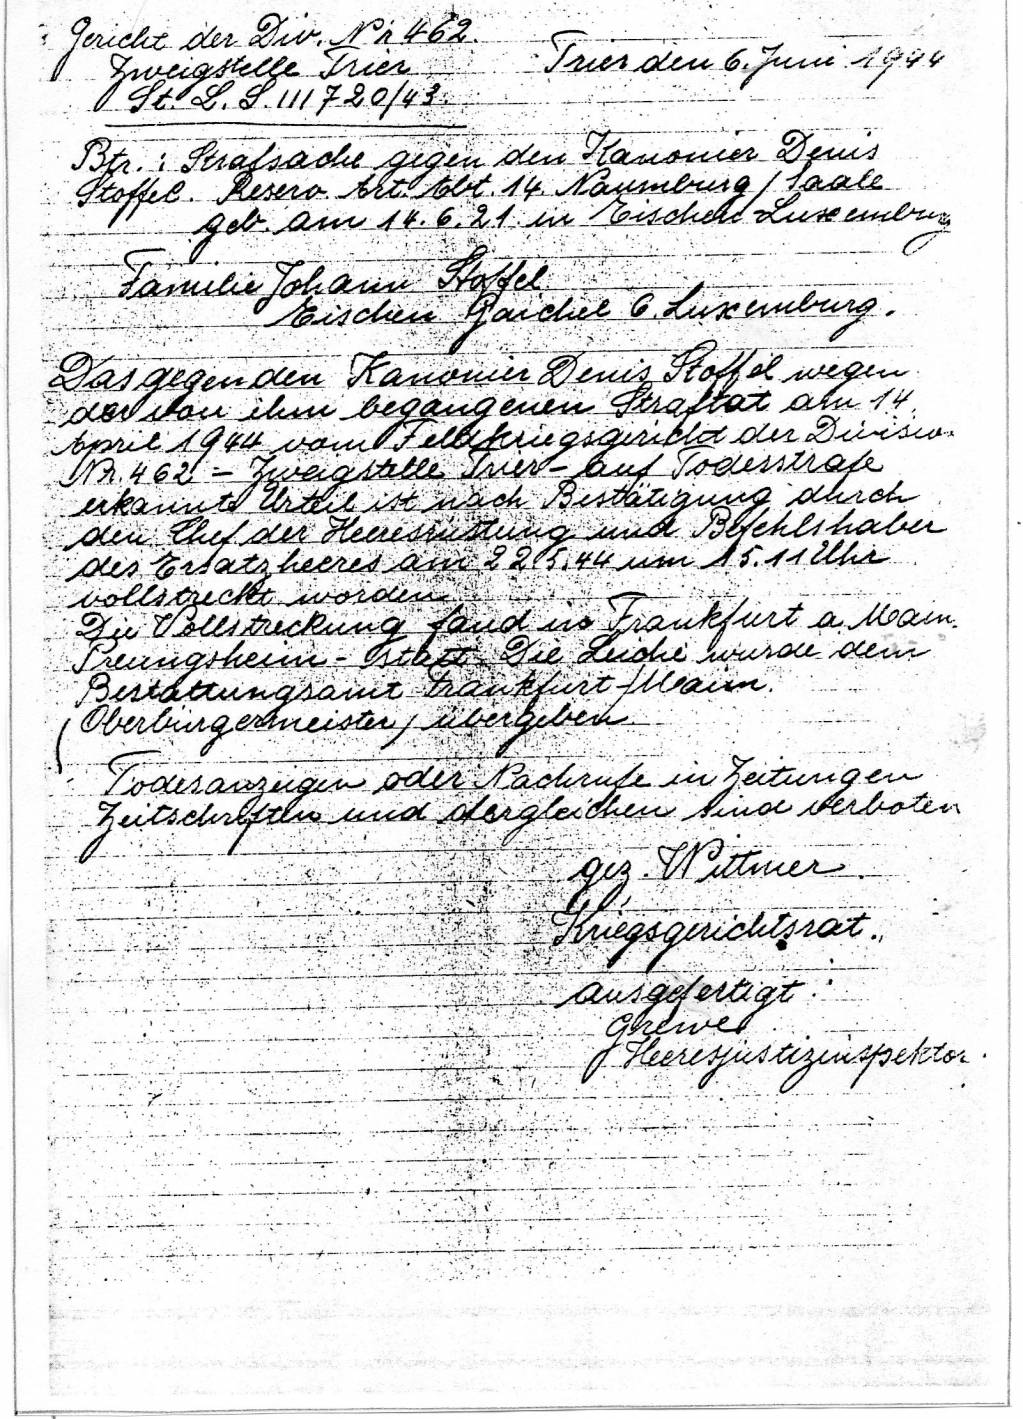 Gericht der Div. Nr 462.
Zweigstelle Trier Trier den 6. Juni 1944
St. L. S. III 720/43.
Btr.: Strafsache gegen den Kanonier Denis
Stoffel. Reserv. Art. Abt. 14. Naumburg / Saale
geb. am 14.6.21. in Eischen Luxemburg
Familie Johann Stoffel
Eischen Gaichel 6. Luxemburg.
Das gegen den Kanonier Denis Stoffel wegen
der von ihm begangenen Straftat am 14.
April 1944 vom Feldkriegsgericht der Division
Nr. 462 - Zweigstelle Trier - auf Todesstrafe
erkannte Urteil ist nach Bestätigung durch
den Chef der Heeresrüstung und Befehlshaber
des Ersatzheeres am 22.5.44 um 15.11 Uhr
vollstreckt worden.
Die Vollstreckung fand in Frankfurt a. Main.
Preungsheim - statt. Die Leiche wurde dem
Bestattungsamt Frankfurt/Main.
(Oberbürgermeister) übergeben.
Todesanzeigen oder Nachrufe in Zeitungen
Zeitschriften und dergleichen sind verboten
gez. Wittmer.
Kriegsgerichtsrat.
ausgefertigt:
Grewe
Heeresjustizinspektor.